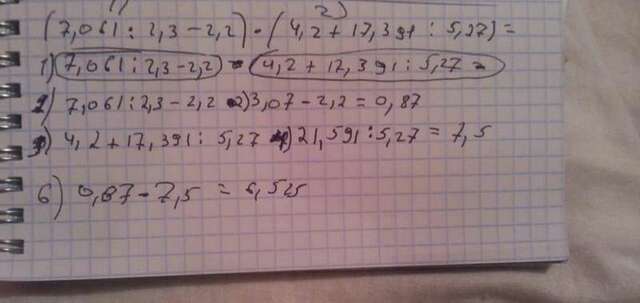 1) 2)
(7,061 : 2,3 - 2,2) · (4,2 + 17,391 : 5,27) =
1) 7,061 : 2,3 - 2,2 - 4,2 + 17,391 : 5,27 =
2) 7,061 : 2,3 - 2,2 2) 3,07 - 2,2 = 0,87
3) 4,2 + 17,391 : 5,27 4) 21,591 : 5,27 = 7,5
6) 0,87 - 7,5 = 6,525